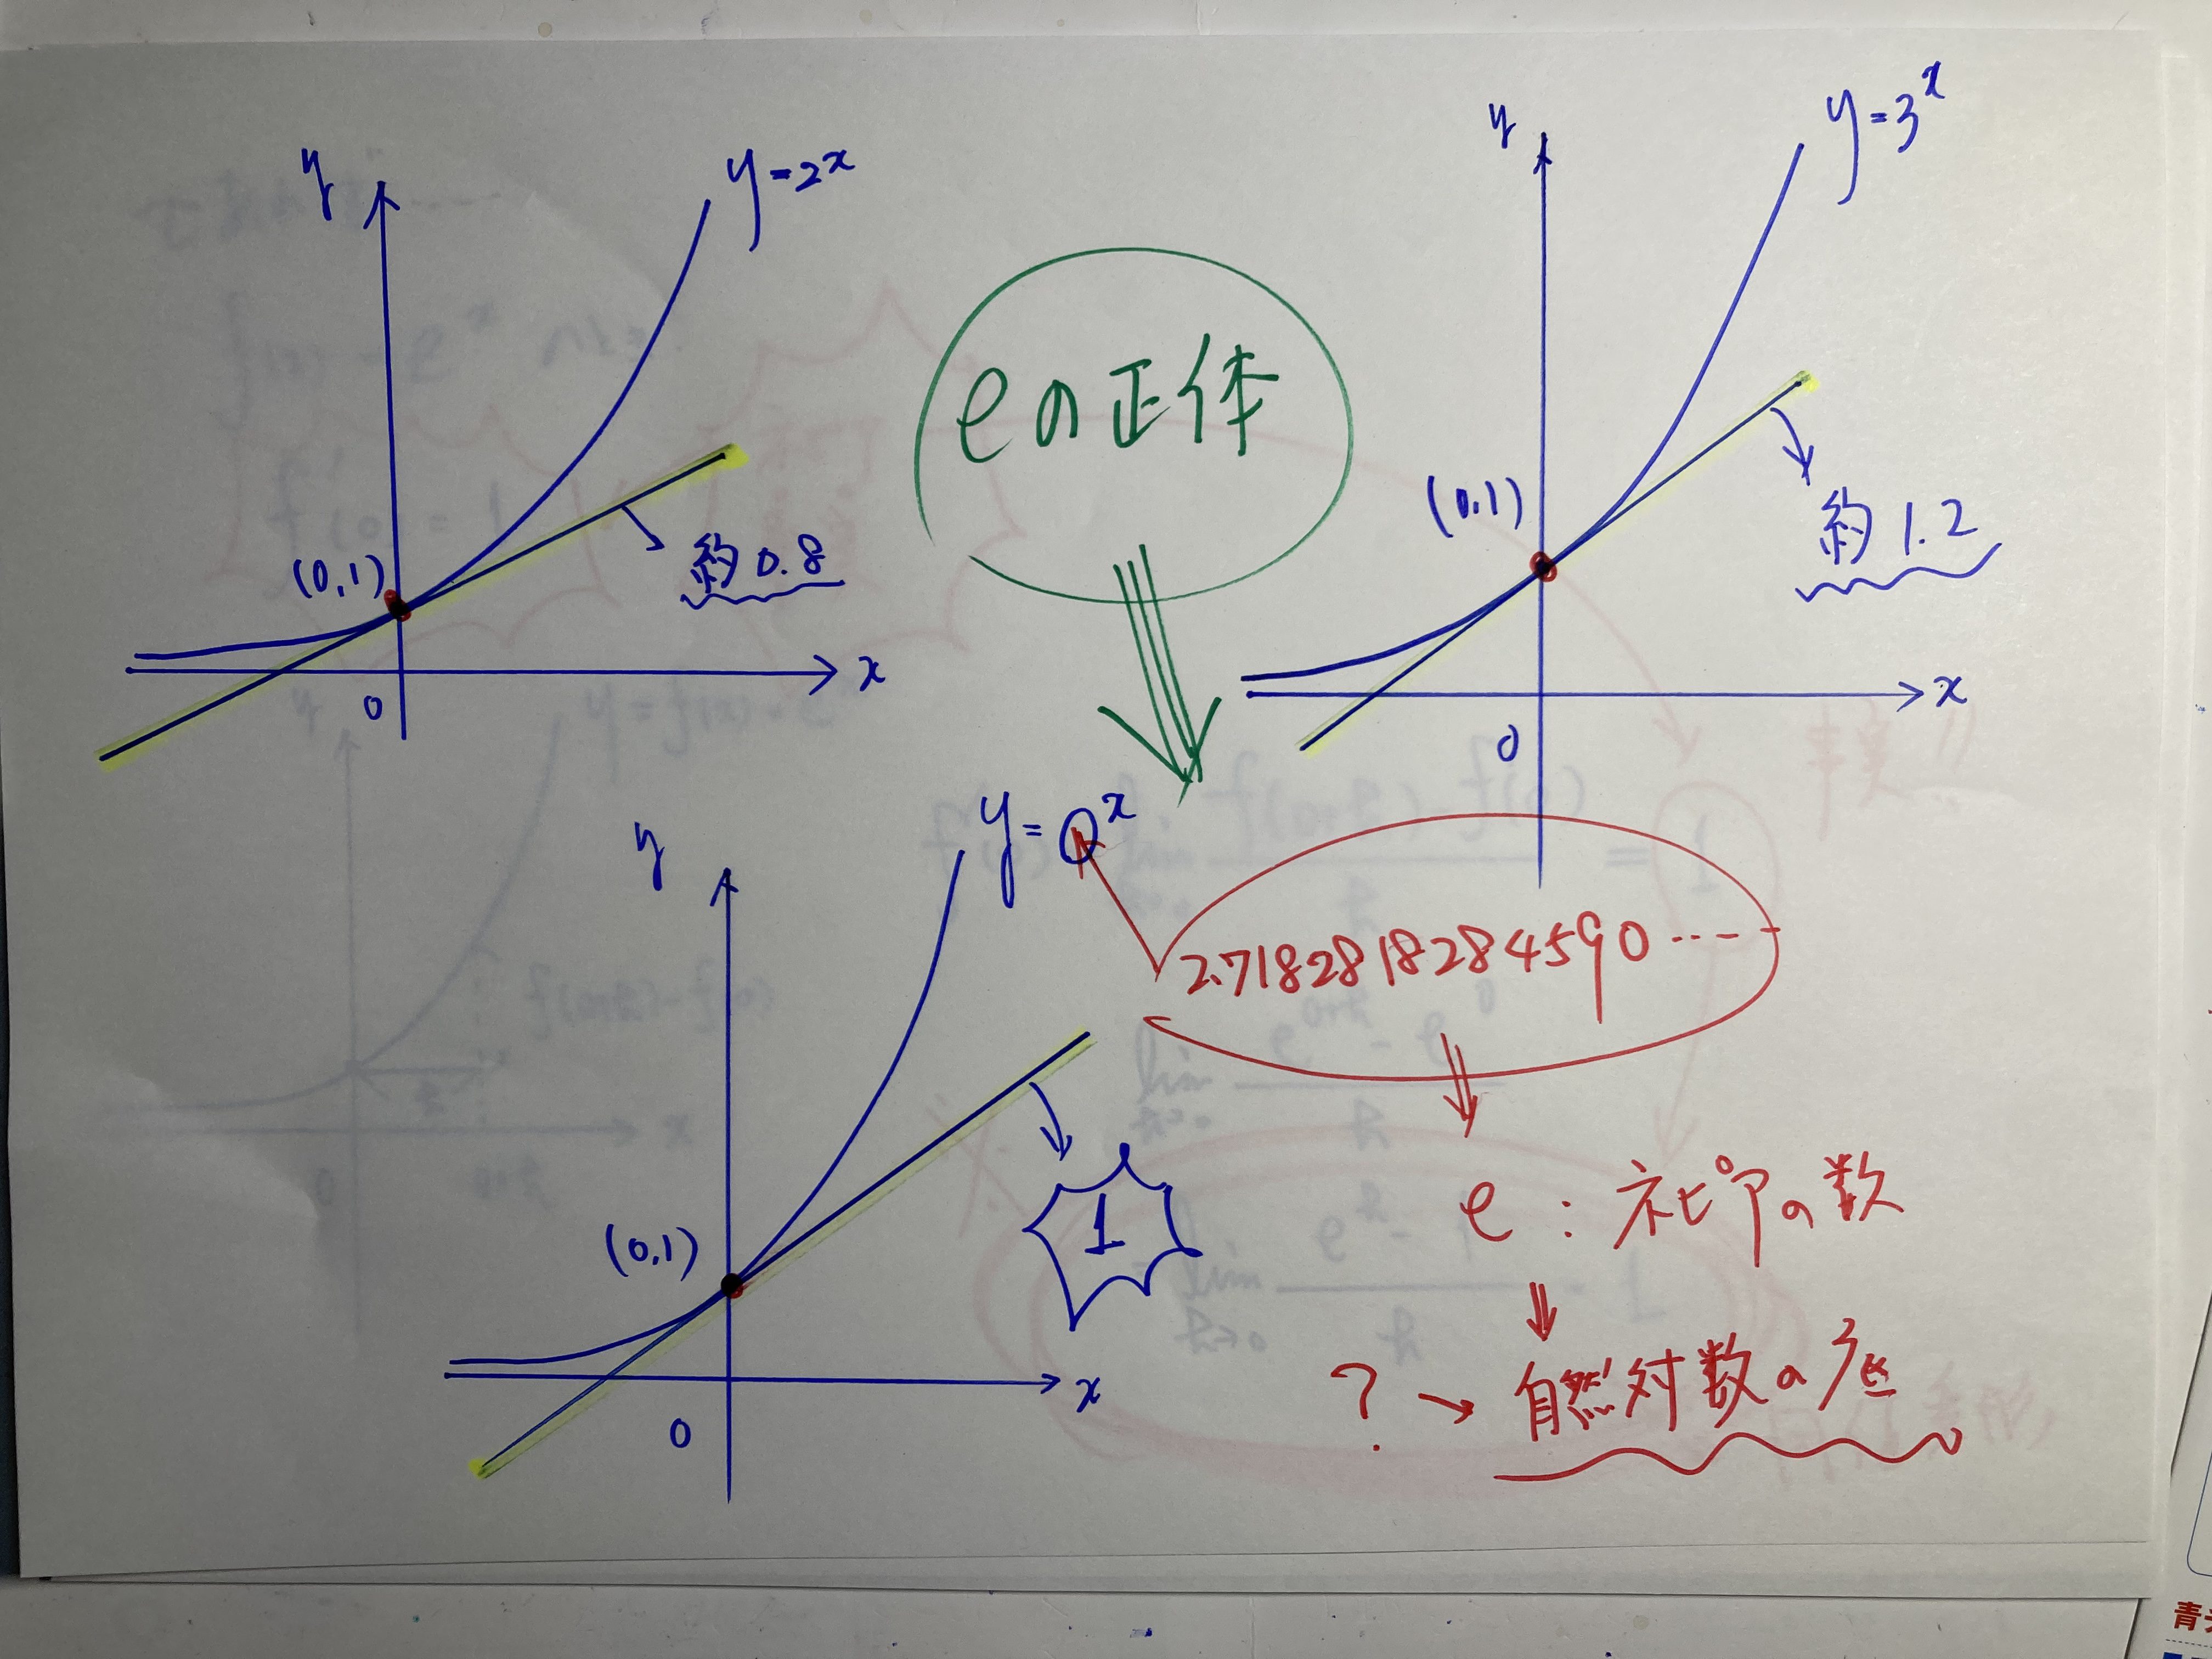 y
y=2^x
(0,1)
約0.8
x
0
eの正体
y
y=3^x
(0,1)
約1.2
x
0
y
y=○^x
2.7182818284590……
(0,1)
1
x
0
e：ネピアの数
？→自然対数の底
青